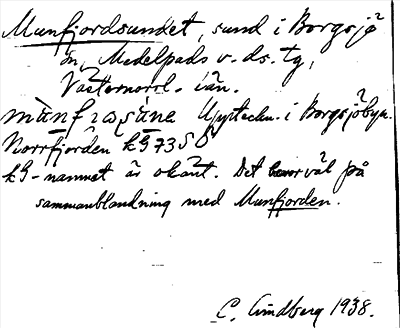 Munfjordsundet, sund i Borgsjö
sn, Medelpads v. ds. tg,
Västernorrl. län.
Uppteckn. i Borgsjöbyn.
Norrfjärden kG 7350
kG-namnet är okänt. Det beror väl på
sammanblandning med Munfjorden.
C. Lindberg 1938.